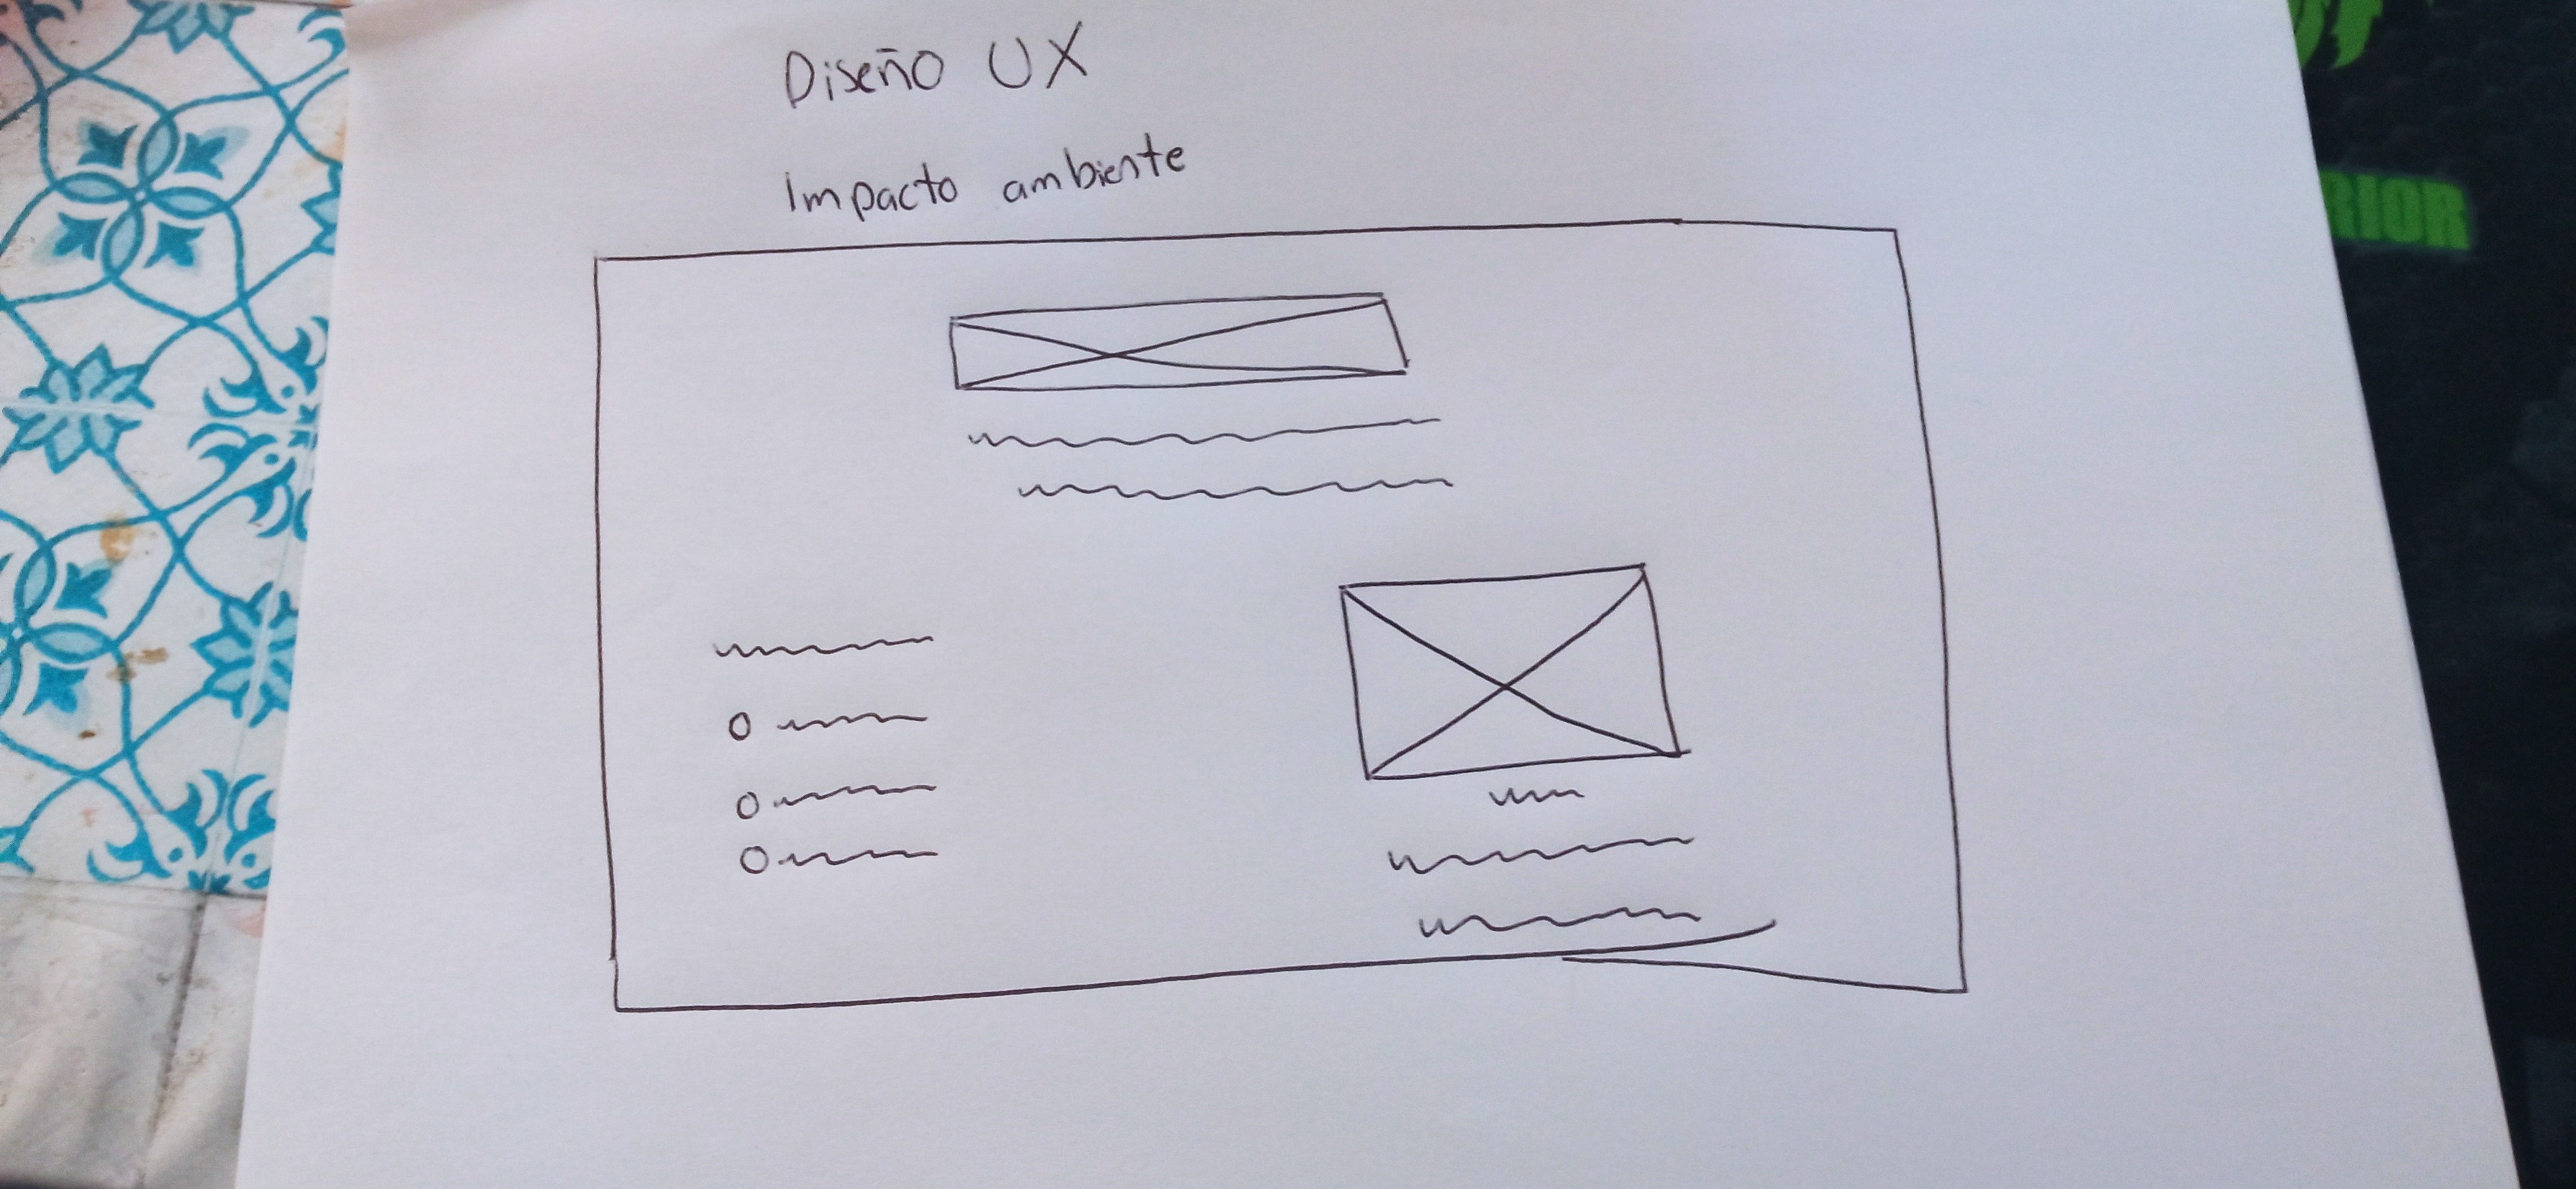 Diseño UX
Impacto ambiente
RIOR